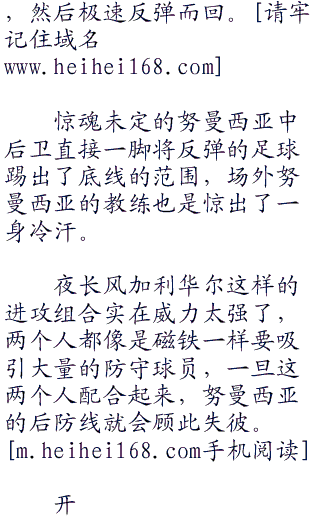 ，然后极速反弹而回。[请牢
记住域名
www.heihei168.com]
惊魂未定的努曼西亚中
后卫直接一脚将反弹的足球
踢出了底线的范围，场外努
曼西亚的教练也是惊出了一
身冷汗。
夜长风加利华尔这样的
进攻组合实在威力太强了，
两个人都像是磁铁一样要吸
引大量的防守球员，一旦这
两个人配合起来，努曼西亚
的后防线就会顾此失彼。
[m.heihei168.com手机阅读]
开